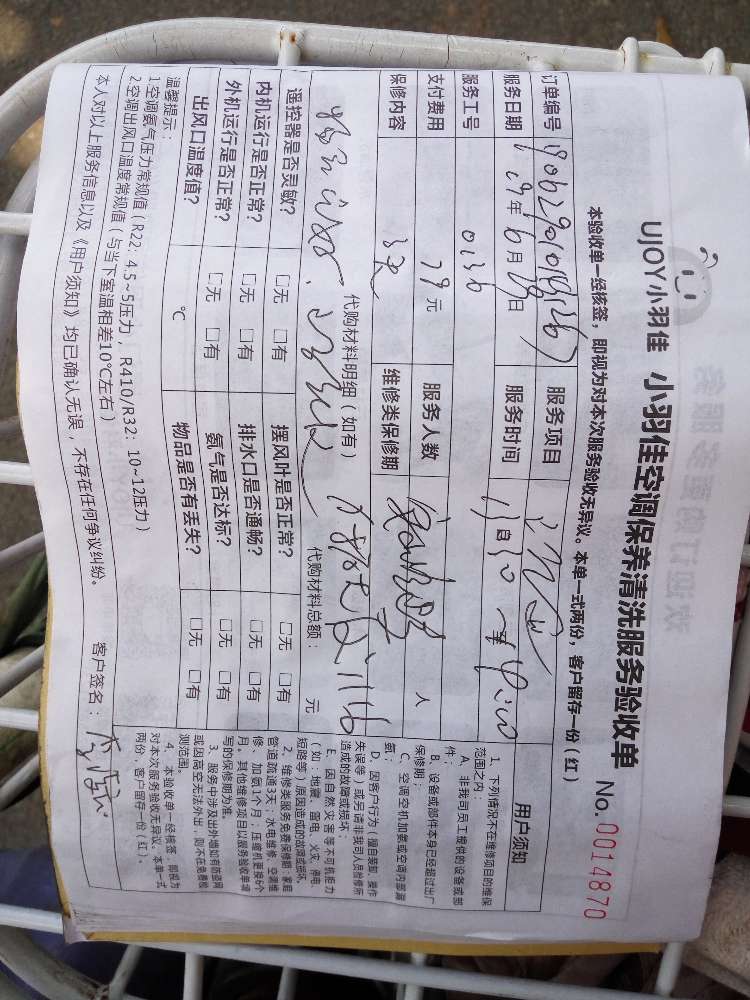 UJOY小羽佳 小羽佳空调保养清洗服务验收单 No. 0014870
本验收单一经核签，即视为对本次服务验收无异议。本单一式两份，客户留存一份（红）
订单编号 服务项目
服务日期 19年6月29日 服务时间
服务工号 0136
支付费用 79元 服务人数 人
保修内容 3天 维修类保修期
代购材料明细（如有） 代购材料总额： 元
遥控器是否灵敏？ □无 □有 摆风叶是否正常？ □无 □有
内机运行是否正常？ □无 □有 排水口是否通畅？ □无 □有
外机运行是否正常？ □无 □有 氨气是否达标？ □无 □有
出风口温度值？ ℃ 物品是否有丢失？ □无 □有
温馨提示：
1空调氨气压力常规值（R22：4.5~5压力，R410/R32：10~12压力）
2空调出风口温度常规值（与当下室温相差10℃左右）
本人对以上服务信息以及《用户须知》均已确认无误，不存在任何争议纠纷。 客户签名：
用户须知
1、下列情况不在维修项目的维保
范围之内
A、非我司员工提供的设备或部
件；
B、设备或部件本身已经超过出厂
保修期；
C、空调空机加氨或空调内部漏
氨；
D、因客户行为（擅自装卸、操作
失误等）或另请非我司人员检修所
造成的故障或损坏；
E、因自然灾害等不可抗拒力
（如：地震、雷电、火灾、停电
短路等）原因造成的故障或损坏。
2、维修类服务免费保修期：家庭
管道疏通3天，水电维修、空调维
修、加氨1个月，压缩机更换6个
月。其他维修项目以服务验收单填
写的保修期为准。
3、服务中涉及出外墙如有防盗网
或因高空无法外出，则不在免费检
测范围。
4、本验收单一经核签，即视为
对本次服务验收无异议。本单一式
两份，客户留存一份（红）。